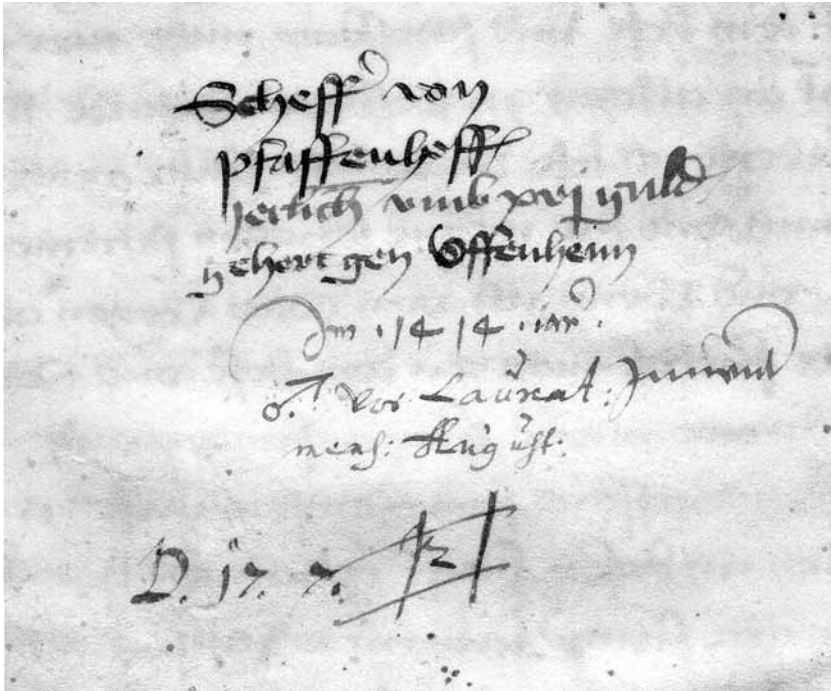 Scheff von
pfaffenheff
jerlich vmb xvj guld
gehort gen Vffenheim
Im 1414 iar.
vor Laurat:
mens: August:
D. 17. 7.